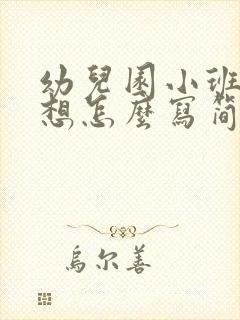 幼兒園小班
想怎麼寫简
烏尔善